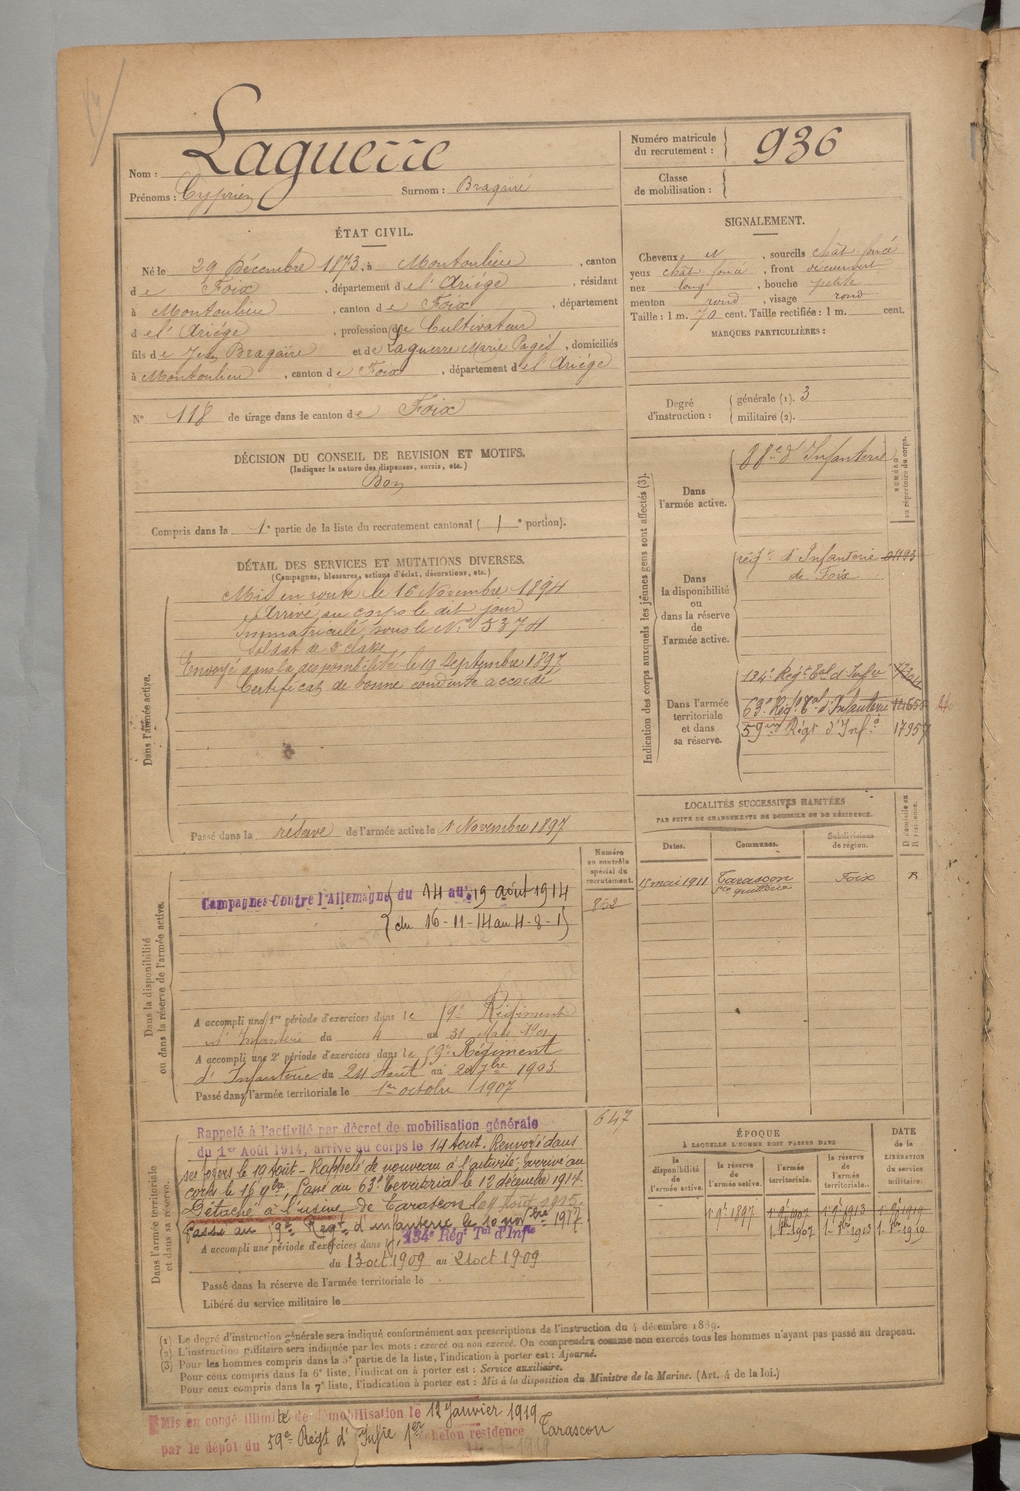 Laguerre
Nom :
Prénoms : Cyprien Surnom : Bragaire
Numéro matricule du recrutement : 936
Classe de mobilisation :
ÉTAT CIVIL.
Né le 29 Décembre 1873, à Montoulieu, canton
de Foix, département de l'Ariége, résidant
à Montoulieu, canton de Foix, département
de l'Ariége, profession de Cultivateur
fils de Jean Bragaire et de Laguerre Marie Pagés, domiciliés
à Montoulieu, canton de Foix, département de l'Ariége
N° 118 de tirage dans le canton de Foix
SIGNALEMENT.
Cheveux N, sourcils chât foncé
yeux chât foncé, front découvert
nez long, bouche petite
menton rond, visage rond
Taille : 1 m. 70 cent. Taille rectifiée : 1 m. cent.
MARQUES PARTICULIÈRES :
Degré d'instruction : générale (1). 3
militaire (2).
DÉCISION DU CONSEIL DE REVISION ET MOTIFS.
(Indiquer la nature des dispenses, sursis, etc.)
Bon
Compris dans la 1e partie de la liste du recrutement cantonal (1e portion).
DÉTAIL DES SERVICES ET MUTATIONS DIVERSES.
(Campagnes, blessures, actions d'éclat, décorations, etc.)
Dans l'armée active.
Mis en route le 16 Novembre 1894
Arrivé au corps le dit jour
Immatriculé sous le N°
Soldat de 2e classe
Envoyé dans la disponibilité le 19 Septembre 1897
Certificat de bonne conduite accordé
Passé dans la réserve de l'armée active le 1 Novembre 1897
Indication des corps auxquels les jeunes gens sont affectés (3).
NUMÉRO au répertoire du corps.
Dans l'armée active.
d'Infanterie
Dans la disponibilité ou dans la réserve de l'armée active.
régt d'Infanterie
de Foix
Dans l'armée territoriale et dans sa réserve.
134e Régt Tal d'Infie
63e Régt Tal d'Infanterie
59eme Régt d'Infie 17957
LOCALITÉS SUCCESSIVES HABITÉES
PAR SUITE DE CHANGEMENTS DE DOMICILE OU DE RÉSIDENCE.
Dates. Communes. Subdivisions de région. Domicile ou Résidence.
15 mai 1911 Tarascon Foix R
Dans la disponibilité ou dans la réserve de l'armée active.
Numéro au contrôle spécial du recrutement.
862
Campagnes Contre l'Allemagne du 14 au 19 août 1914
du 16-11-14 au 4-8-15
A accompli une 1re période d'exercices dans le 59e Régiment
d'Infanterie du 4 au 31 Mars
A accompli une 2e période d'exercices dans le 59e Régiment
d'Infanterie du 24 Août au 20 7bre 1903
Passé dans l'armée territoriale le 1er octobre 1907
Dans l'armée territoriale et dans sa réserve.
647
Rappelé à l'activité par décret de mobilisation générale
du 1er Août 1914, arrivé au corps le 14 Août. Renvoyé dans
ses foyers le 19 Août - Rappelé de nouveau à l'activité, arrivé au
corps le 16 9bre, Passé au 63e Territorial le 12 décembre 1914.
Détaché à l'usine de Tarascon le 4 Août 1915.
Passé au 59e Régt d'infanterie le 10 novbre 1917
A accompli une période d'exercices dans le 134e Régt Tal d'Infie
du 13 oct 1909 au 21 oct 1909
Passé dans la réserve de l'armée territoriale le
Libéré du service militaire le
ÉPOQUE
À LAQUELLE L'HOMME DOIT PASSER DANS
la disponibilité de l'armée active. la réserve de l'armée active. l'armée territoriale. la réserve de l'armée territoriale.
DATE de la LIBÉRATION du service militaire.
1 9bre 1897
1 8bre 1907 1 8bre 1913 1 8bre 1919
(1) Le degré d'instruction générale sera indiqué conformément aux prescriptions de l'instruction du 4 décembre 1889.
(2) L'instruction militaire sera indiquée par les mots : exercé ou non exercé. On comprendra comme non exercés tous les hommes n'ayant pas passé au drapeau.
(3) Pour les hommes compris dans la 5e partie de la liste, l'indication à porter est : Ajourné.
Pour ceux compris dans la 6e liste, l'indication à porter est : Service auxiliaire.
Pour ceux compris dans la 7e liste, l'indication à porter est : Mis à la disposition du Ministre de la Marine. (Art. 4 de la loi.)
Mis en congé illimité de démobilisation le 12 Janvier 1919
par le dépôt du 59e Régt d'Infie 1er échelon résidence Tarascon